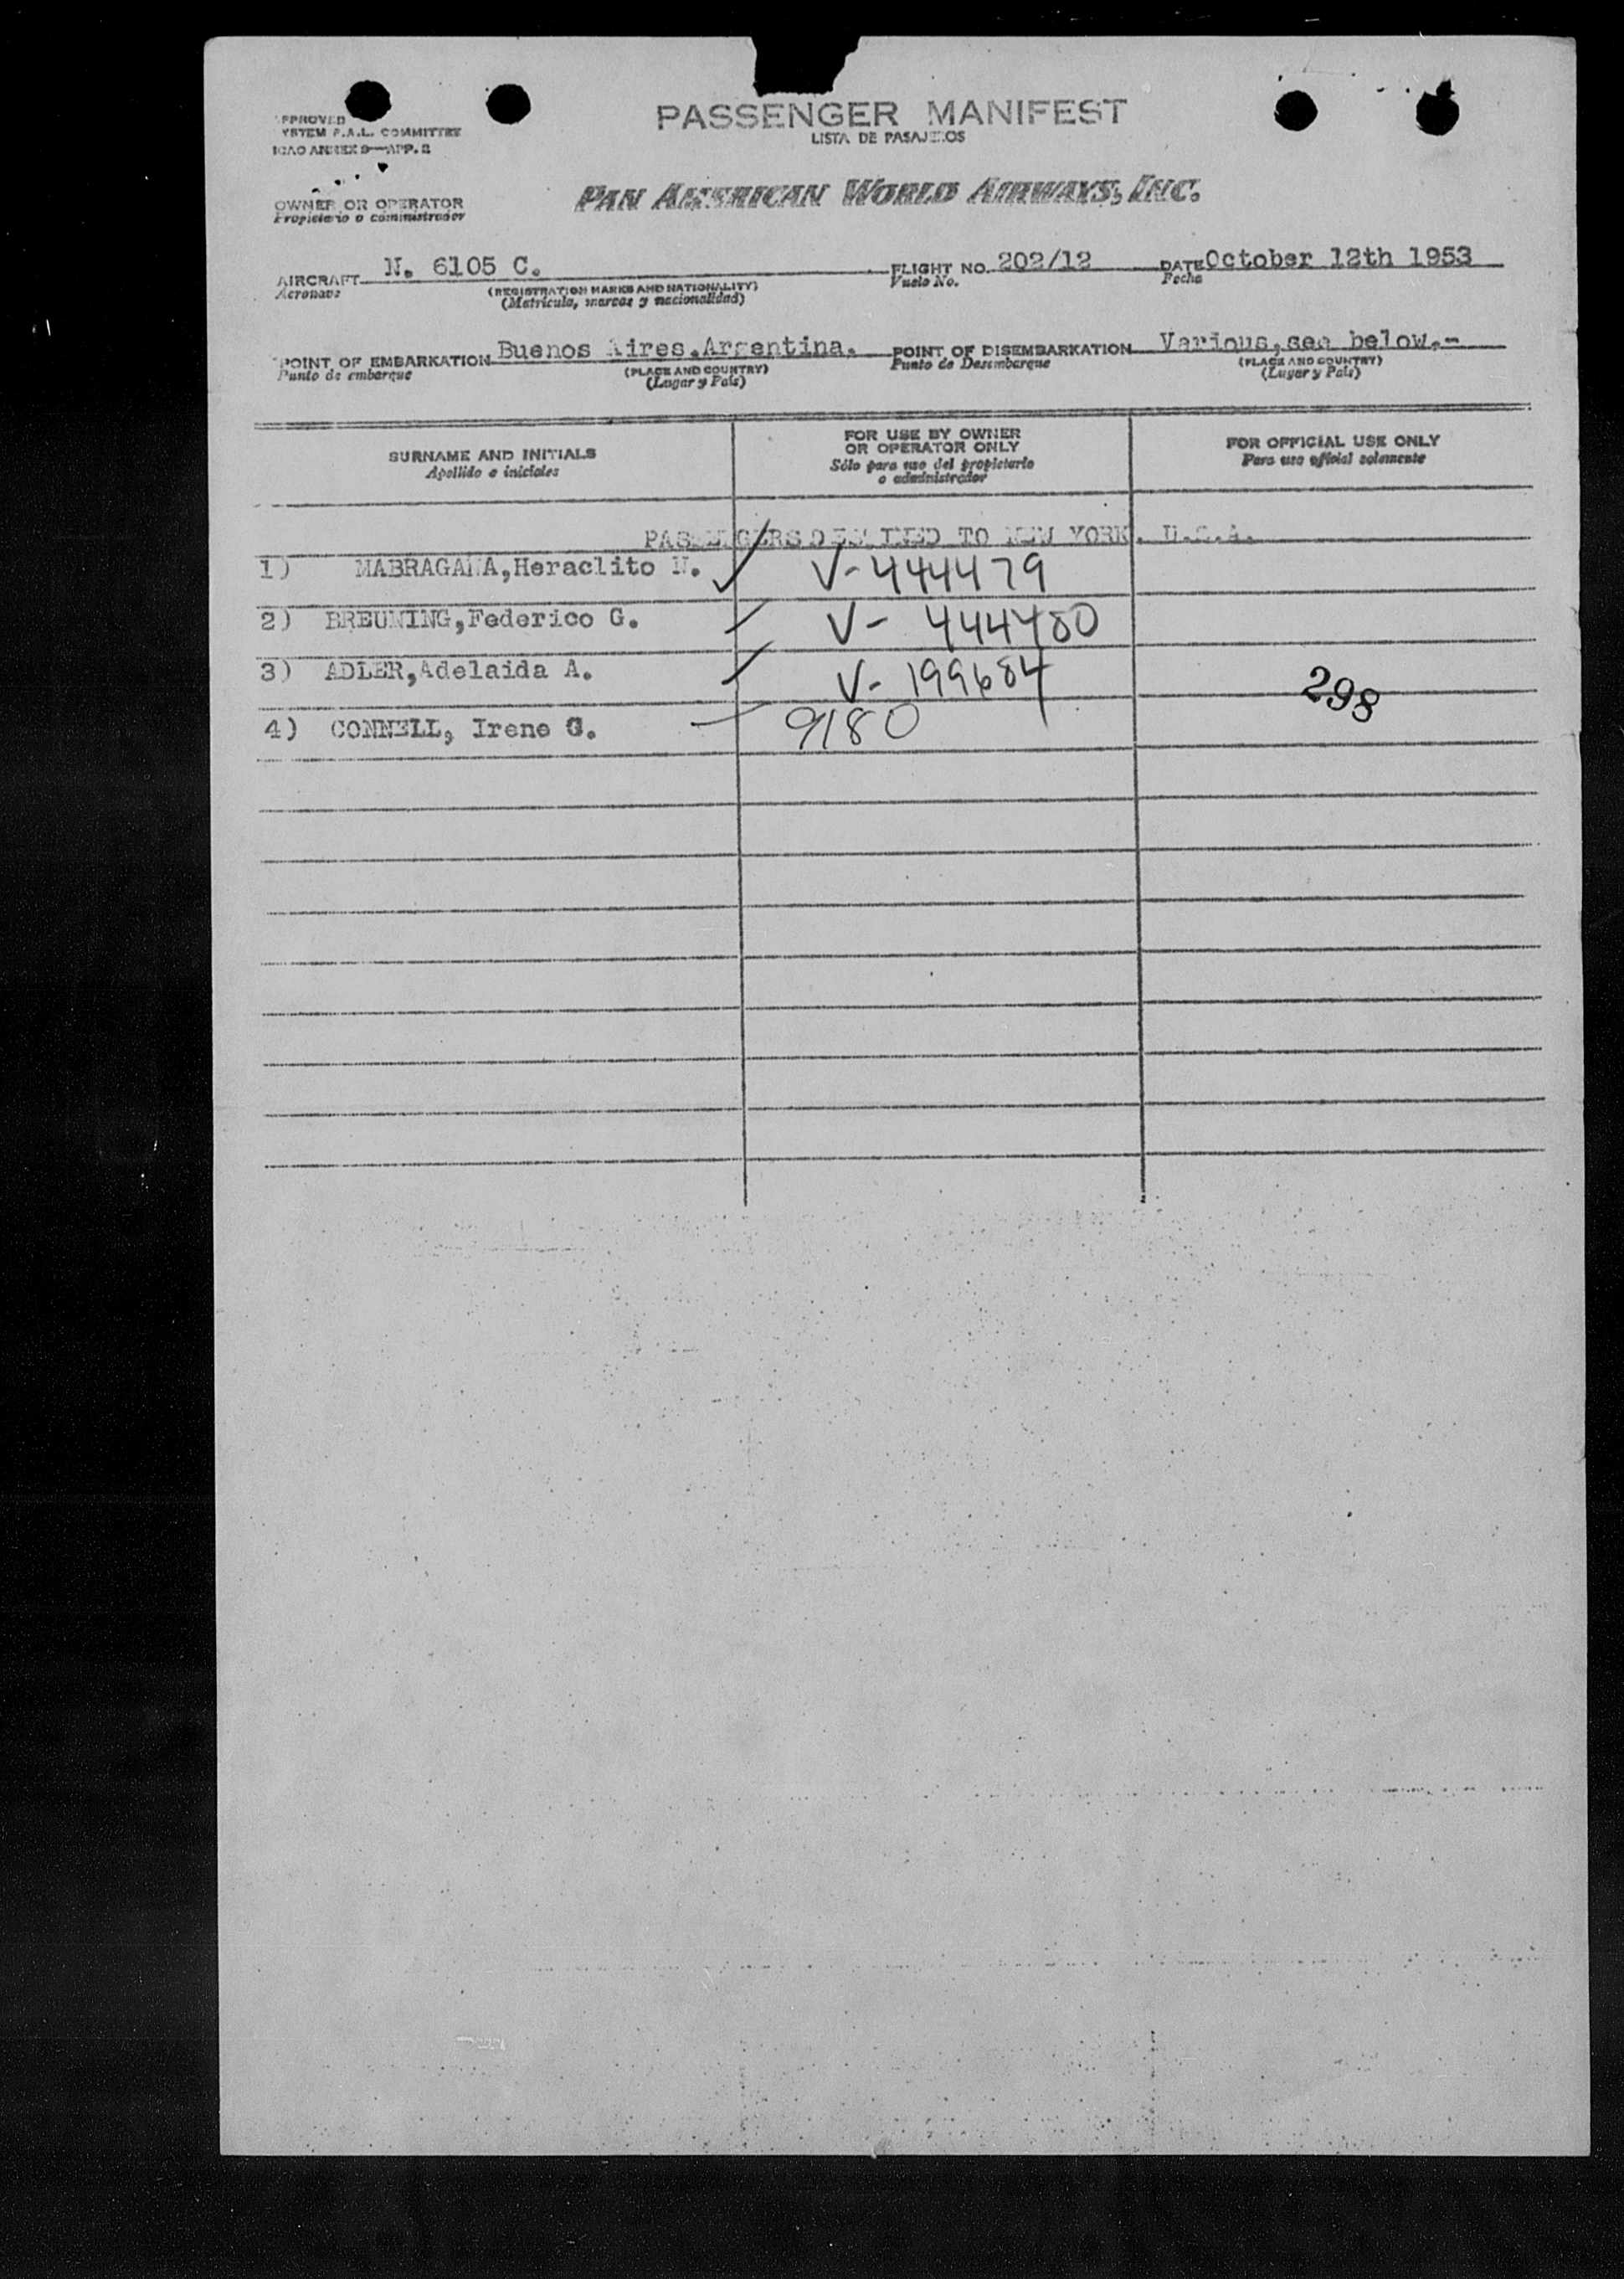 PASSENGER MANIFEST
LISTA DE PASAJEROS
APPROVED
SYSTEM F.A.L. COMMITTEE
ICAO ANNEX 9—APP. 2
OWNER OR OPERATOR
Propietario o administrador
PAN AMERICAN WORLD AIRWAYS, INC.
AIRCRAFT N. 6105 C. FLIGHT NO. 202/12 DATE October 12th 1953
Aeronave (REGISTRATION MARKS AND NATIONALITY) Vuelo No. Fecha
(Matrícula, marcas y nacionalidad)
POINT OF EMBARKATION Buenos Aires.Argentina. POINT OF DISEMBARKATION Various,see below.-
Punto de embarque (PLACE AND COUNTRY) Punto de Desembarque (PLACE AND COUNTRY)
(Lugar y País) (Lugar y País)
SURNAME AND INITIALS
Apellido e iniciales
FOR USE BY OWNER
OR OPERATOR ONLY
Sólo para uso del propietario
o administrador
FOR OFFICIAL USE ONLY
Para uso oficial solamente
PASSENGERS DESTINED TO NEW YORK. U.S.A.
1) MABRAGANA,Heraclito N. V-444479
2) BREUNING,Federico G. V- 444480
3) ADLER,Adelaida A. V- 199684
298
4) CONNELL, Irene G. 9180